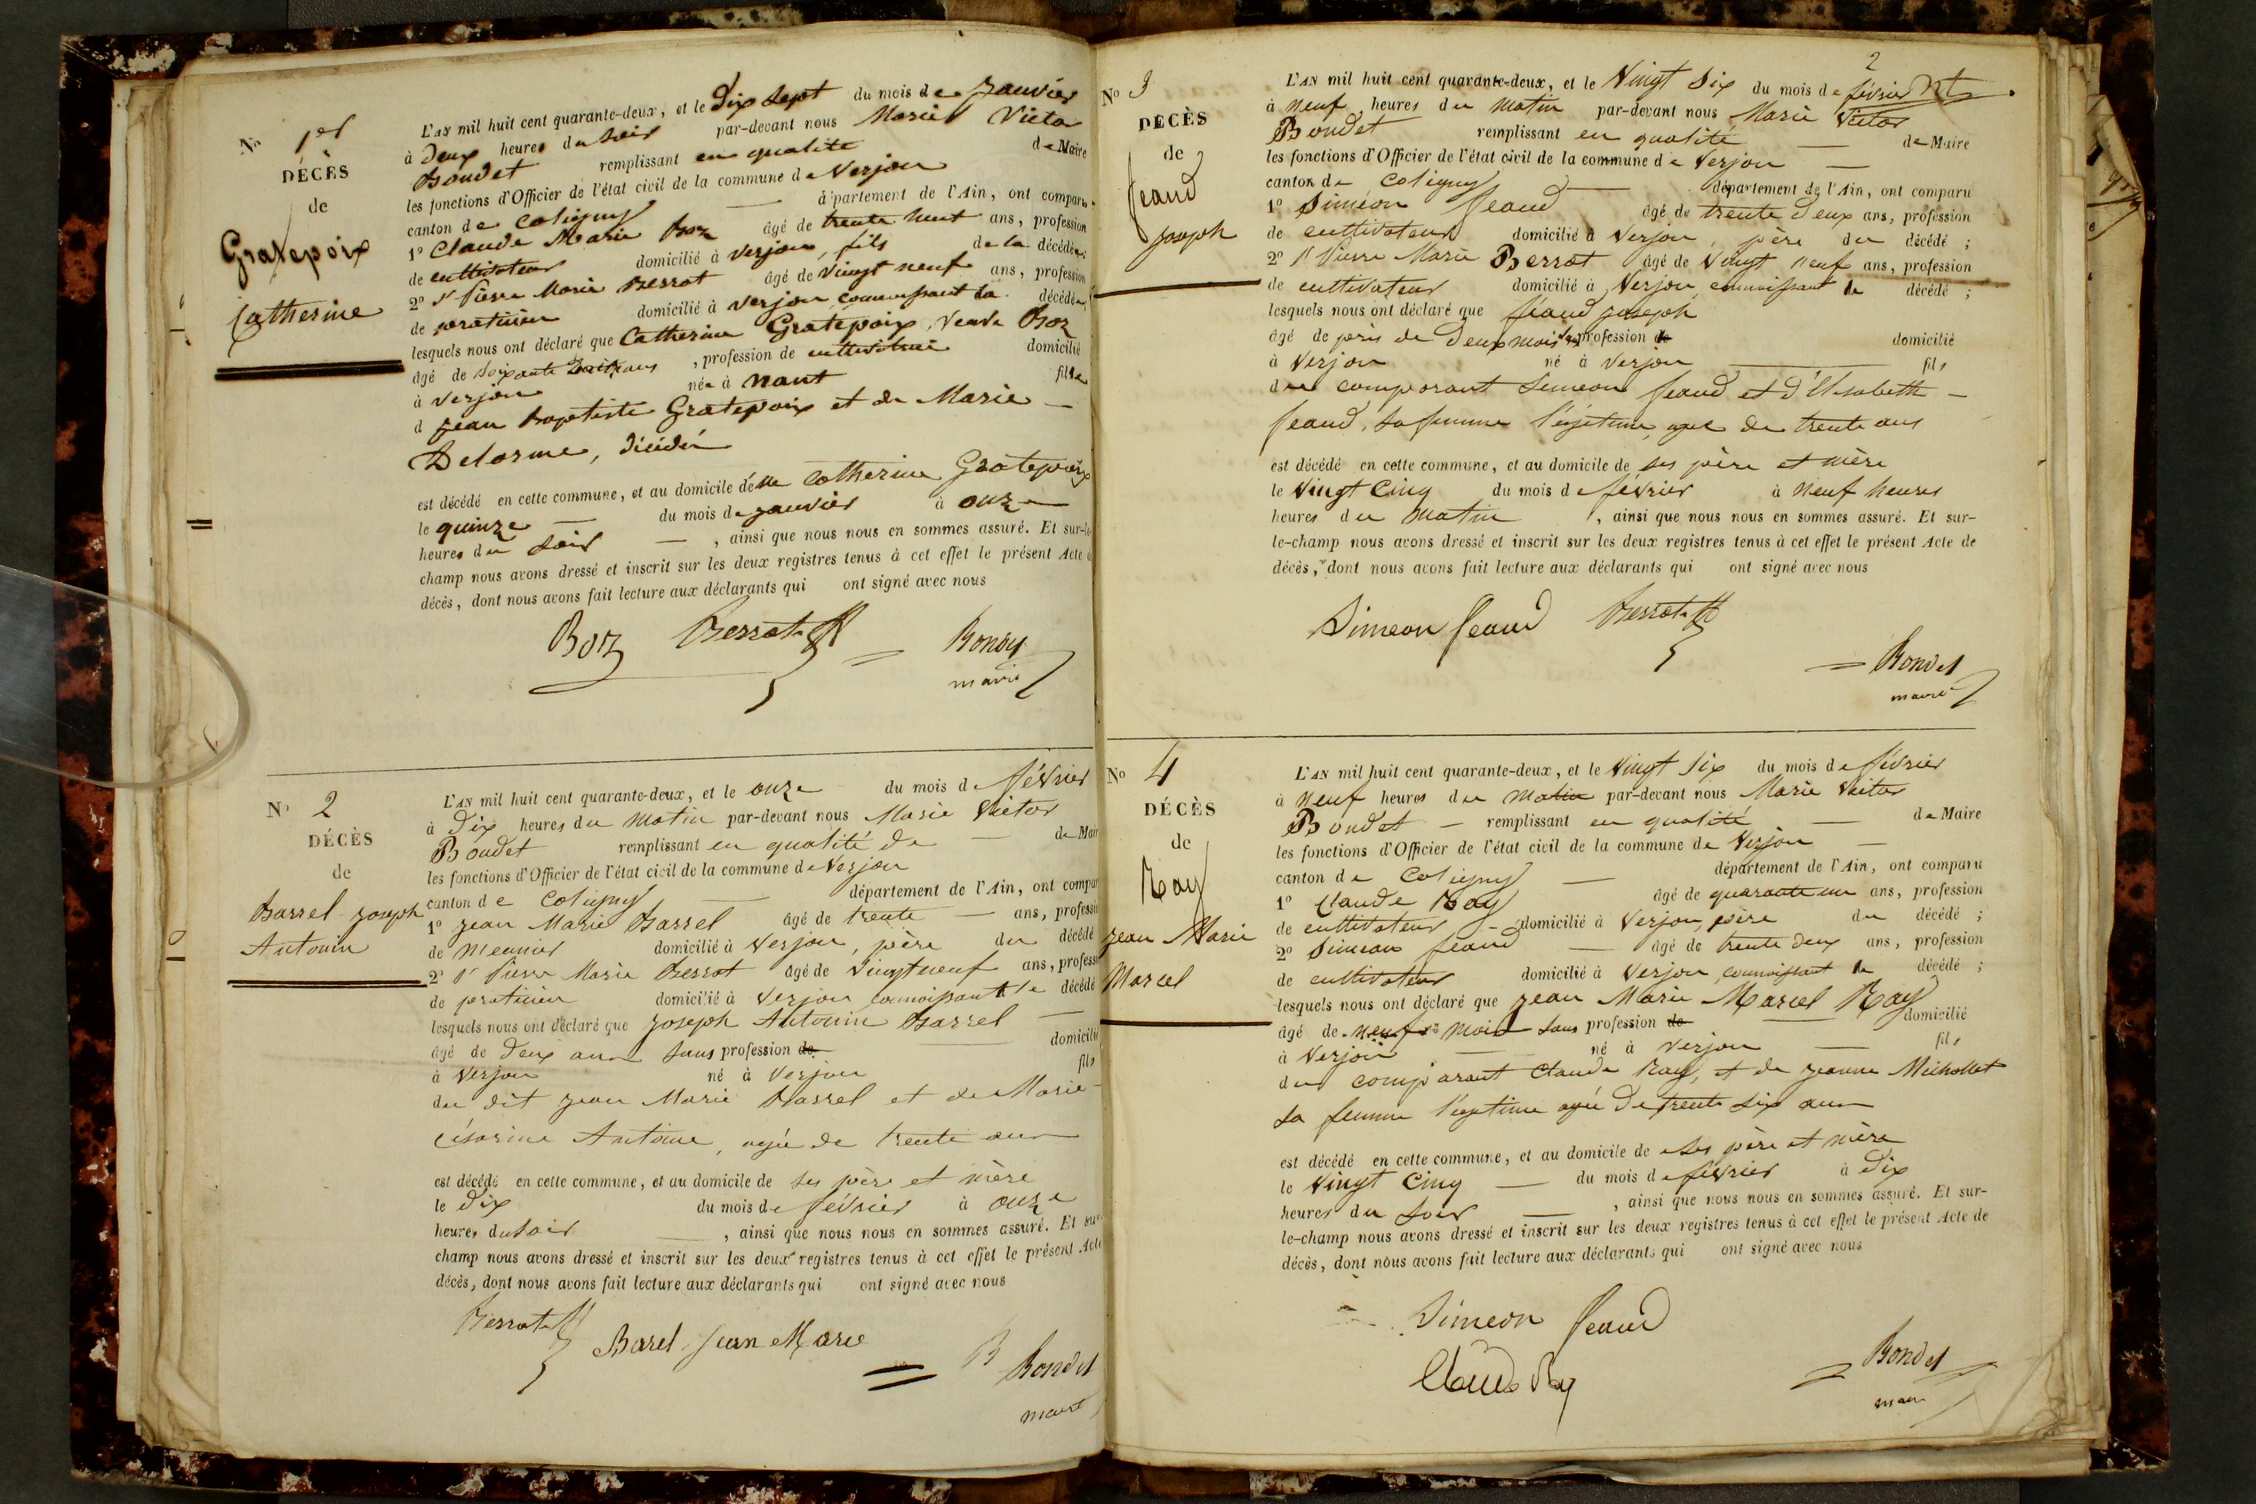 N° 1er
DÉCÈS
de
Gratepoix
Catherine
L'AN mil huit cent quarante-deux, et le Dix Sept du mois de Janvier
à Deux heures du soir par-devant nous Marie Victor
Boudet remplissant en qualité de Maire
les fonctions d'Officier de l'état civil de la commune de Verjon
canton de Coligny — département de l'Ain, ont comparu
1° Claude Marie Boz âgé de trente ans, profession
de cultivateur domicilié à Verjon, fils de la décédée;
2° Sr Pierre Marie Perrat âgé de Vingt neuf ans, profession
de praticien domicilié à Verjon connaissant la décédée;
lesquels nous ont déclaré que Catherine Gratepoix, veuve Boz
âgé de soixante ans, profession de cultivatrice domicilié
à Verjon née à nant fille
d Jean Baptiste Gratepoix et de Marie —
Delorme, décédés
est décédé en cette commune, et au domicile d'elle Catherine Gratepoix
le quinze — du mois de Janvier à onze
heures du soir — , ainsi que nous nous en sommes assuré. Et sur-le-
champ nous avons dressé et inscrit sur les deux registres tenus à cet effet le présent Acte de
décès, dont nous avons fait lecture aux déclarants qui ont signé avec nous
Boz Perrat Boudet
maire
N° 2
DÉCÈS
de
Barrel Joseph
Antonin
L'AN mil huit cent quarante-deux, et le onze du mois de février
à Dix heures du matin par-devant nous Marie Victor
Boudet remplissant en qualité de — de Mair
les fonctions d'Officier de l'état civil de la commune de Verjon
canton de Coligny — département de l'Ain, ont compar
1° Jean Marie Barrel âgé de trente — ans, professi
de meunier domicilié à Verjon, père du décédé
2° Sr Pierre Marie Perrat âgé de Vingt neuf ans, professi
de praticien domicilié à Verjon connaissant le décédé
lesquels nous ont déclaré que Joseph Antonin Barrel —
âgé de Deux ans sans profession de — domicilié
à Verjon né à Verjon fils
du dit Jean Marie Barrel et de Marie-
Césarine Antoine, agée de trente ans
est décédé en cette commune, et au domicile de ses père et mère
le dix du mois de février à onze
heures du soir — , ainsi que nous nous en sommes assuré. Et sur
champ nous avons dressé et inscrit sur les deux registres tenus à cet effet le présent Acte
décès, dont nous avons fait lecture aux déclarants qui ont signé avec nous
Perrat Barel Jean Marie B Boudet
maire
2
N° 3
DÉCÈS
de
Jeaud
Joseph
L'AN mil huit cent quarante-deux, et le Vingt Six du mois de février
à neuf heures du matin par-devant nous Marie Victor
Boudet remplissant en qualité — de Maire
les fonctions d'Officier de l'état civil de la commune de Verjon —
canton de Coligny — département de l'Ain, ont comparu
1° Siméon Jeaud âgé de trente deux ans, profession
de cultivateur domicilié à Verjon, père du décédé;
2° Sr Pierre Marie Perrat âgé de Vingt neuf ans, profession
de cultivateur domicilié à Verjon, connaissant le décédé;
lesquels nous ont déclaré que Jeaud Joseph
âgé de près de Deux mois profession de domicilié
à Verjon né à Verjon — fils
du comparant Simeon Jeaud et d'Elisabeth —
Jeaud, sa femme légitime, agée de trente ans
est décédé en cette commune, et au domicile de ses père et mère
le Vingt Cinq du mois de février à neuf heures
heures du matin , ainsi que nous nous en sommes assuré. Et sur-
le-champ nous avons dressé et inscrit sur les deux registres tenus à cet effet le présent Acte de
décès, dont nous avons fait lecture aux déclarants qui ont signé avec nous
Simeon Jeaud Perrat
Boudet
maire
N° 4
DÉCÈS
de
Ray
Jean Marie
Marcel
L'AN mil huit cent quarante-deux, et le Vingt Six du mois de février
à neuf heures du matin par-devant nous Marie Victor
Boudet — remplissant en qualité — de Maire
les fonctions d'Officier de l'état civil de la commune de Verjon —
canton de Coligny — département de l'Ain, ont comparu
1° Claude Ray âgé de quarante un ans, profession
de cultivateur — domicilié à Verjon, père du décédé;
2° Simeon Jeaud — âgé de trente deux ans, profession
de cultivateur domicilié à Verjon, connaissant le décédé;
lesquels nous ont déclaré que Jean Marie Marcel Ray
âgé de neuf mois sans profession de — domicilié
à Verjon — né à Verjon — fils
du comparant Claude Ray, et de Jeanne Michollet
sa femme légitime agée de trente six ans
est décédé en cette commune, et au domicile de ses père et mère
le Vingt Cinq — du mois de février à Dix
heures du soir — , ainsi que nous nous en sommes assuré. Et sur-
le-champ nous avons dressé et inscrit sur les deux registres tenus à cet effet le présent Acte de
décès, dont nous avons fait lecture aux déclarants qui ont signé avec nous
Simeon Jeaud
Claude Ray Boudet
maire